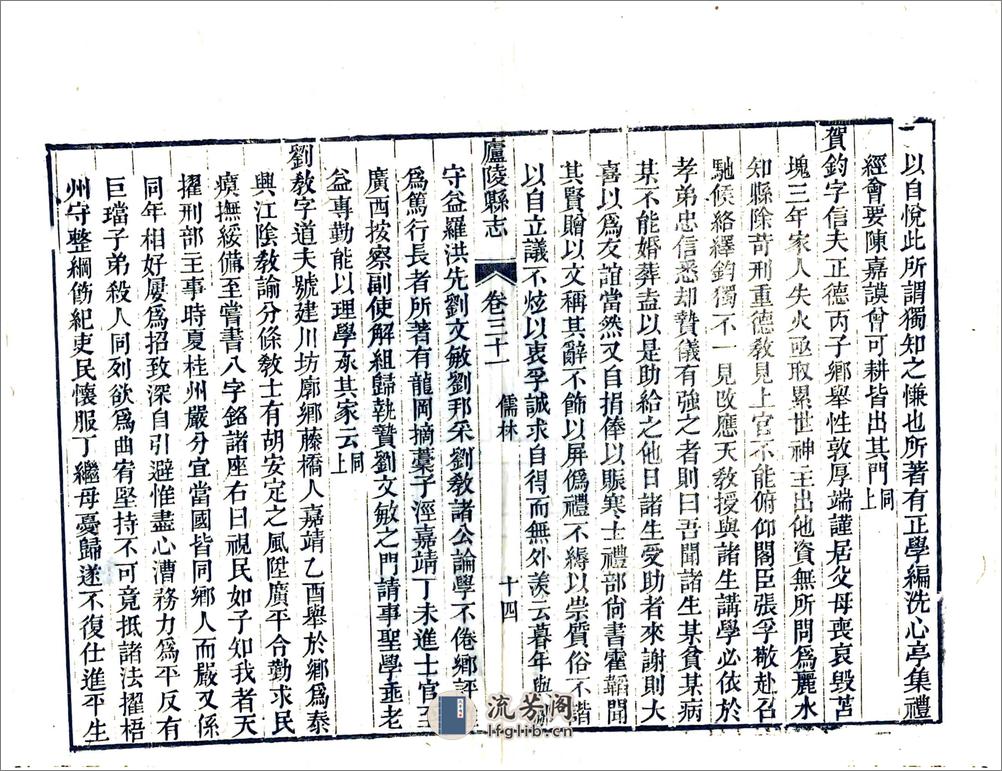 以自悅此所謂獨知之慊也所著有正學編洗心亭集禮
經會要陳嘉謨曾可耕皆出其門同上
賀鈞字信夫正德丙子鄉舉性敦厚端謹居父母喪哀毀苫
塊三年家人失火亟取累世神主出他資無所問爲麗水
知縣除苛刑重德敎見上官不能俯仰閣臣張孚敬赴召
馳候絡繹鈞獨不一見改應天敎授與諸生講學必依於
孝弟忠信悉却贄儀有強之者則曰吾聞諸生某貧某病
某不能婚葬盍以是助給之他日諸生受助者來謝則大
喜以爲友誼當然又自捐俸以賑寒士禮部尚書霍韜聞
其賢贈以文稱其辭不飾以屏僞禮不縟以崇質俗不諧
以自立議不炫以衷孚誠求自得而無外羨云暮年與鄒
廬陵縣志 卷三十一 儒林 十四
守益羅洪先劉文敏劉邦采劉敎諸公論學不倦鄉評
爲篤行長者所著有龍岡摘藁子涇嘉靖丁未進士官至
廣西按察副使解組歸執贄劉文敏之門請事聖學垂老
益專勤能以理學承其家云同上
劉敎字道夫號建川坊廓鄉藤橋人嘉靖乙酉舉於鄉爲泰
興江陰敎諭分條敎士有胡安定之風陞廣平令勤求民
瘼撫綏備至嘗書八字銘諸座右曰視民如子知我者天
擢刑部主事時夏桂州嚴分宜當國皆同鄉人而嚴又係
同年相好屢爲招致深自引避惟盡心漕務力爲平反有
巨璫子弟殺人同列欲爲曲宥堅持不可竟抵諸法擢梧
州守整綱飭紀吏民懷服丁繼母憂歸遂不復仕進平生
流芳阁
lfglib.cn